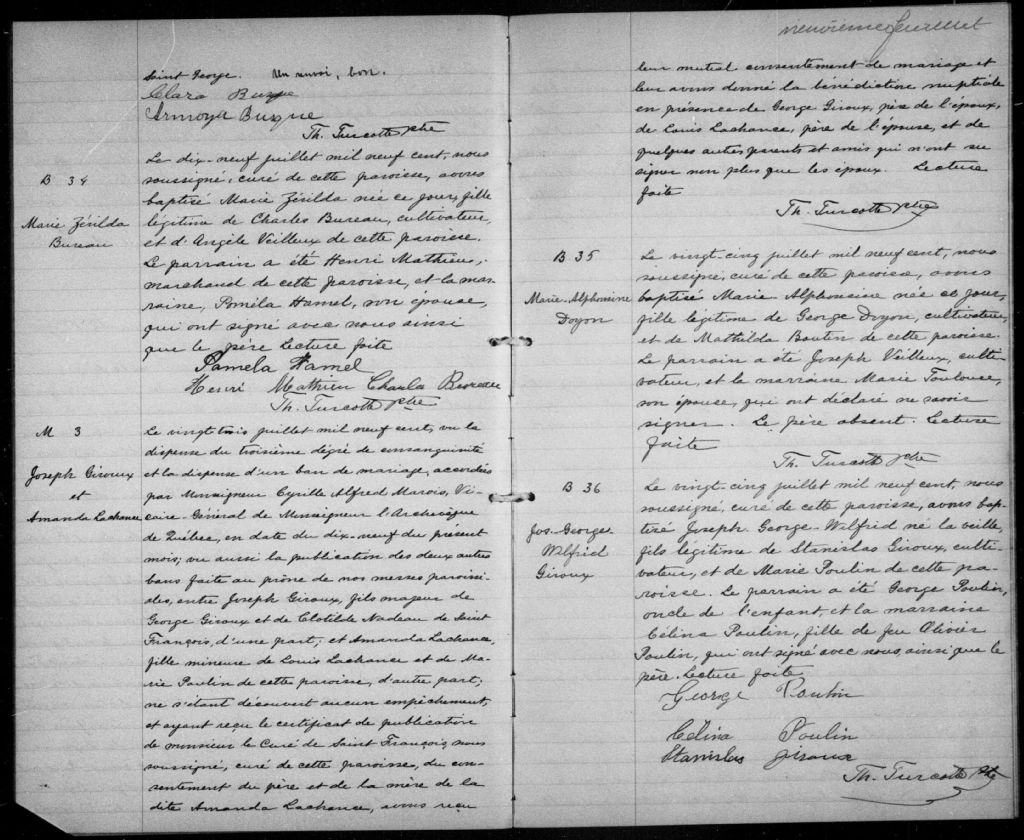 Saint George. Un renvoi, bon.
Clara Buque
Armoza Buque
Th. Turcotte ptre
B 34
Marie Zérilda
Bureau
Le dix-neuf juillet mil neuf cent, nous
soussigné, curé de cette paroisse, avons
baptisé Marie Zérilda née ce jour, fille
légitime de Charles Bureau, cultivateur,
et d'Angèle Veilleux de cette paroisse.
Le parrain a été Henri Mathieu,
marchand de cette paroisse, et la mar-
raine, Paméla Hamel, son épouse,
qui ont signé avec nous ainsi
que le père Lecture faite
Pamela Hamel
Henri Mathieu Charles Bureau
Th. Turcotte ptre
M 3
Joseph Giroux
et
Amanda Lachance
Le vingt trois juillet mil neuf cent, vu la
dispense du troisième dégré de consanguinité
et la dispense d'un ban de mariage, accordées
par Monseigneur Cyrille Alfred Marois, Vi-
caire-Général de Monseigneur l'Archevêque
de Québec, en date du dix-neuf du présent
mois; vu aussi la publication des deux autres
bans faite au prône de nos messes paroissi-
ales, entre Joseph Giroux, fils majeur de
George Giroux et de Clotilde Nadeau de Saint
François, d'une part; et Amanda Lachance,
fille mineure de Louis Lachance et de Ma-
rie Poulin de cette paroisse, d'autre part;
ne s'étant découvert aucun empêchement,
et ayant reçu le certificat de publication
de monsieur le Curé de Saint François, nous
soussigné, curé de cette paroisse, du con-
sentement du père et de la mère de la
dite Amanda Lachance, avons reçu
neuvième feuillet
leur mutuel consentement de mariage et
leur avons donné la bénédiction nuptiale
en présence de George Giroux, père de l'époux,
de Louis Lachance, père de l'épouse, et de
quelques autres parents et amis qui n'ont su
signer non plus que les époux. Lecture
faite
Th. Turcotte ptre
B 35
Marie-Alphonsine
Doyon
Le vingt-cinq juillet mil neuf cent, nous
soussigné, curé de cette paroisse, avons
baptisé Marie Alphonsine née ce jour,
fille légitime de George Doyon, cultivateur,
et de Mathilda Boutin de cette paroisse.
Le parrain a été Joseph Veilleux, culti-
vateur, et la marraine Marie Toulouse,
son épouse, qui ont déclaré ne savoir
signer. Le père absent. Lecture
faite
Th. Turcotte ptre
B 36
Jos-George
Wilfrid
Giroux
Le vingt-cinq juillet mil neuf cent, nous
soussigné, curé de cette paroisse, avons bap-
tisé Joseph George-Wilfrid né la veille,
fils légitime de Stanislas Giroux, culti-
vateur, et de Marie Poulin de cette pa-
roisse. Le parrain a été George Poulin,
oncle de l'enfant, et la marraine
Célina Poulin, fille de feu Olivier
Poulin, qui ont signé avec nous, ainsi que le
père. Lecture faite
George Poulin
Célina Poulin
Stanislas Giroux
Th. Turcotte ptre